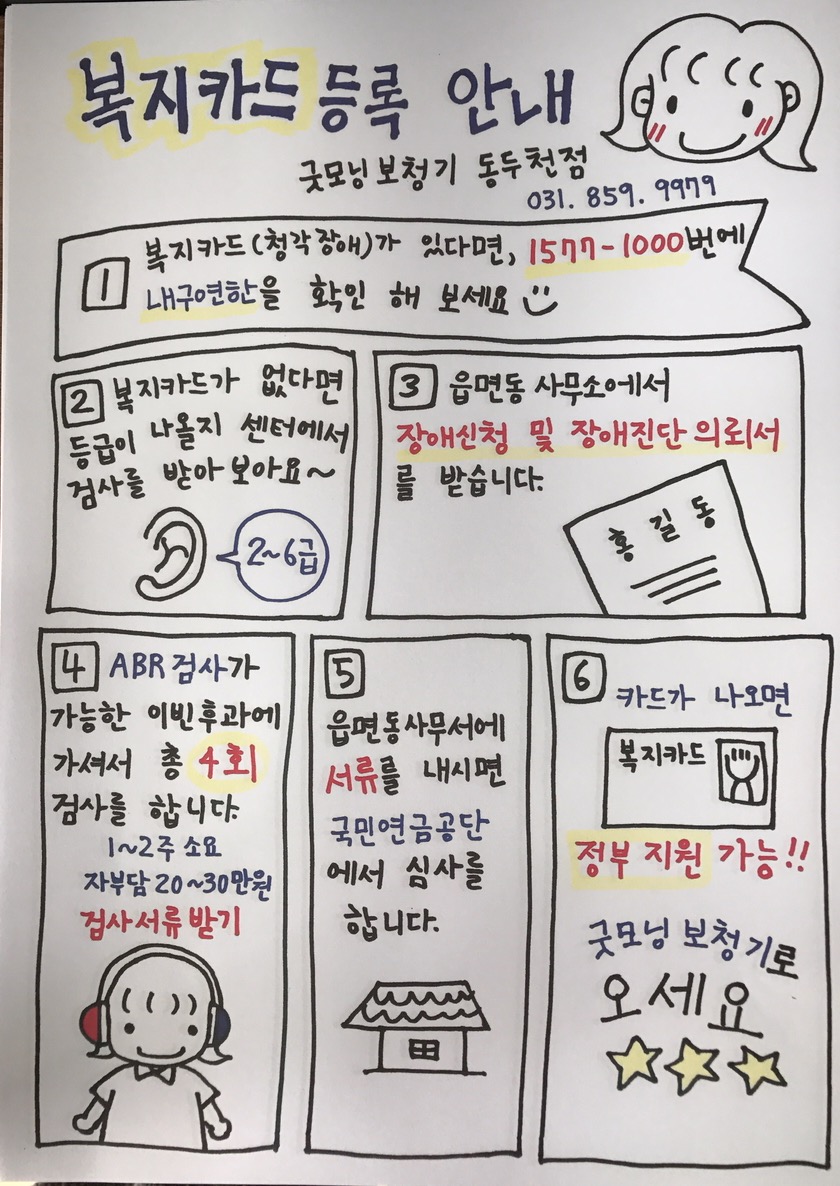 복지카드 등록 안내
굿모닝보청기 동두천점
031. 859. 9979
1 복지카드(청각장애)가 있다면, 1577-1000번에
내구연한을 확인 해 보세요
2 복지카드가 없다면
등급이 나올지 센터에서
검사를 받아보아요~
2~6급
3 읍면동 사무소에서
장애신청 및 장애진단의뢰서
를 받습니다.
홍길동
4 ABR검사가
가능한 이빈후과에
가셔서 총 4회
검사를 합니다.
1~2주 소요
자부담 20~30만원
검사서류받기
5
읍면동사무서에
서류를 내시면
국민연금공단
에서 심사를
합니다.
6 카드가 나오면
복지카드
정부 지원 가능!!
굿모닝 보청기로
오세요